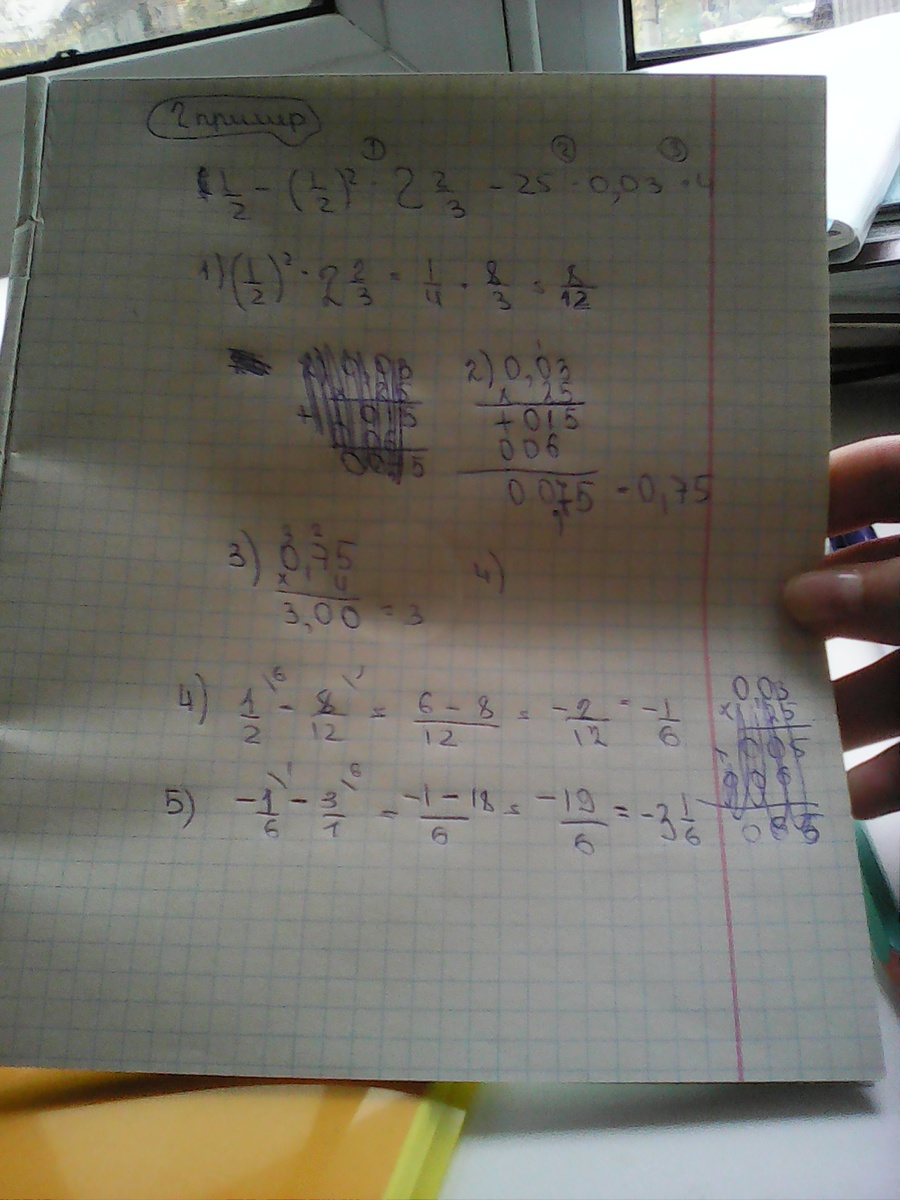 2 пример
① ② ③
1/2 - (1/2)² · 2 2/3 - 25 · 0,03 · 4
1) (1/2)² · 2 2/3 = 1/4 · 8/3 = 8/12
2) 0,03
× 25
+ 015
006
0 075 = 0,75
3) 0,75
× 4
3,00 = 3
4)
4) 1/2 \6 - 8/12 \1 = 6 - 8/12 = -2/12 = -1/6
5) -1/6 \1 - 3/1 \6 = -1 - 18/6 = -19/6 = -3 1/6
0,03
× 25